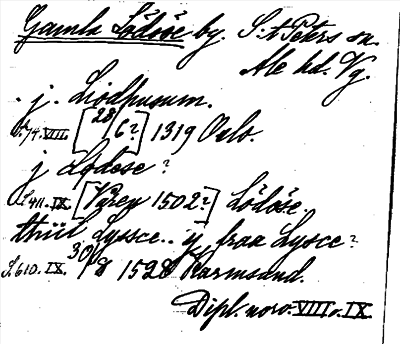 Gamla Lödöse by. S:t Peters sn.
Ale hd. Vg.
j. Liodhusum.
S. 74. VIII. [28/6?] 1319 Oslo.
j Lydose?
S. 411. IX. [Våren 1502?] Lödöse.
thiil Lyssce.. ij fraa Lysce?
S. 610. IX. 30/8 1528 Karmsund.
Dipl. norv. VIII o. IX.